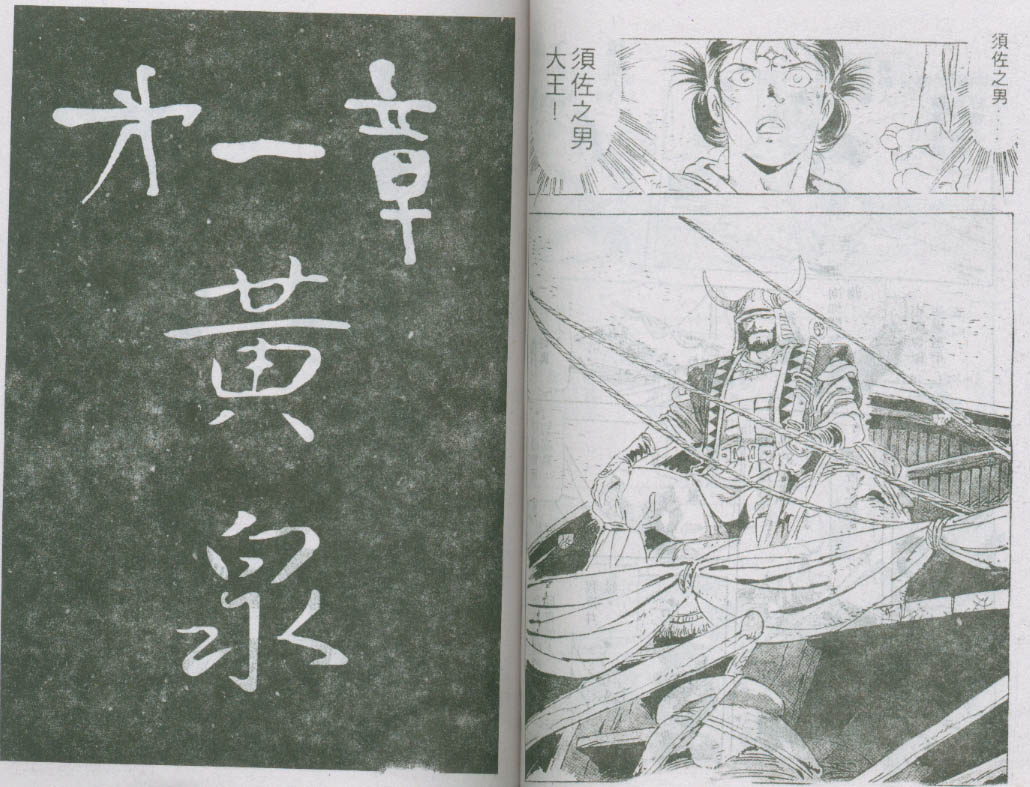 須佐之男……
須佐之男
大王！
第一章
黃泉